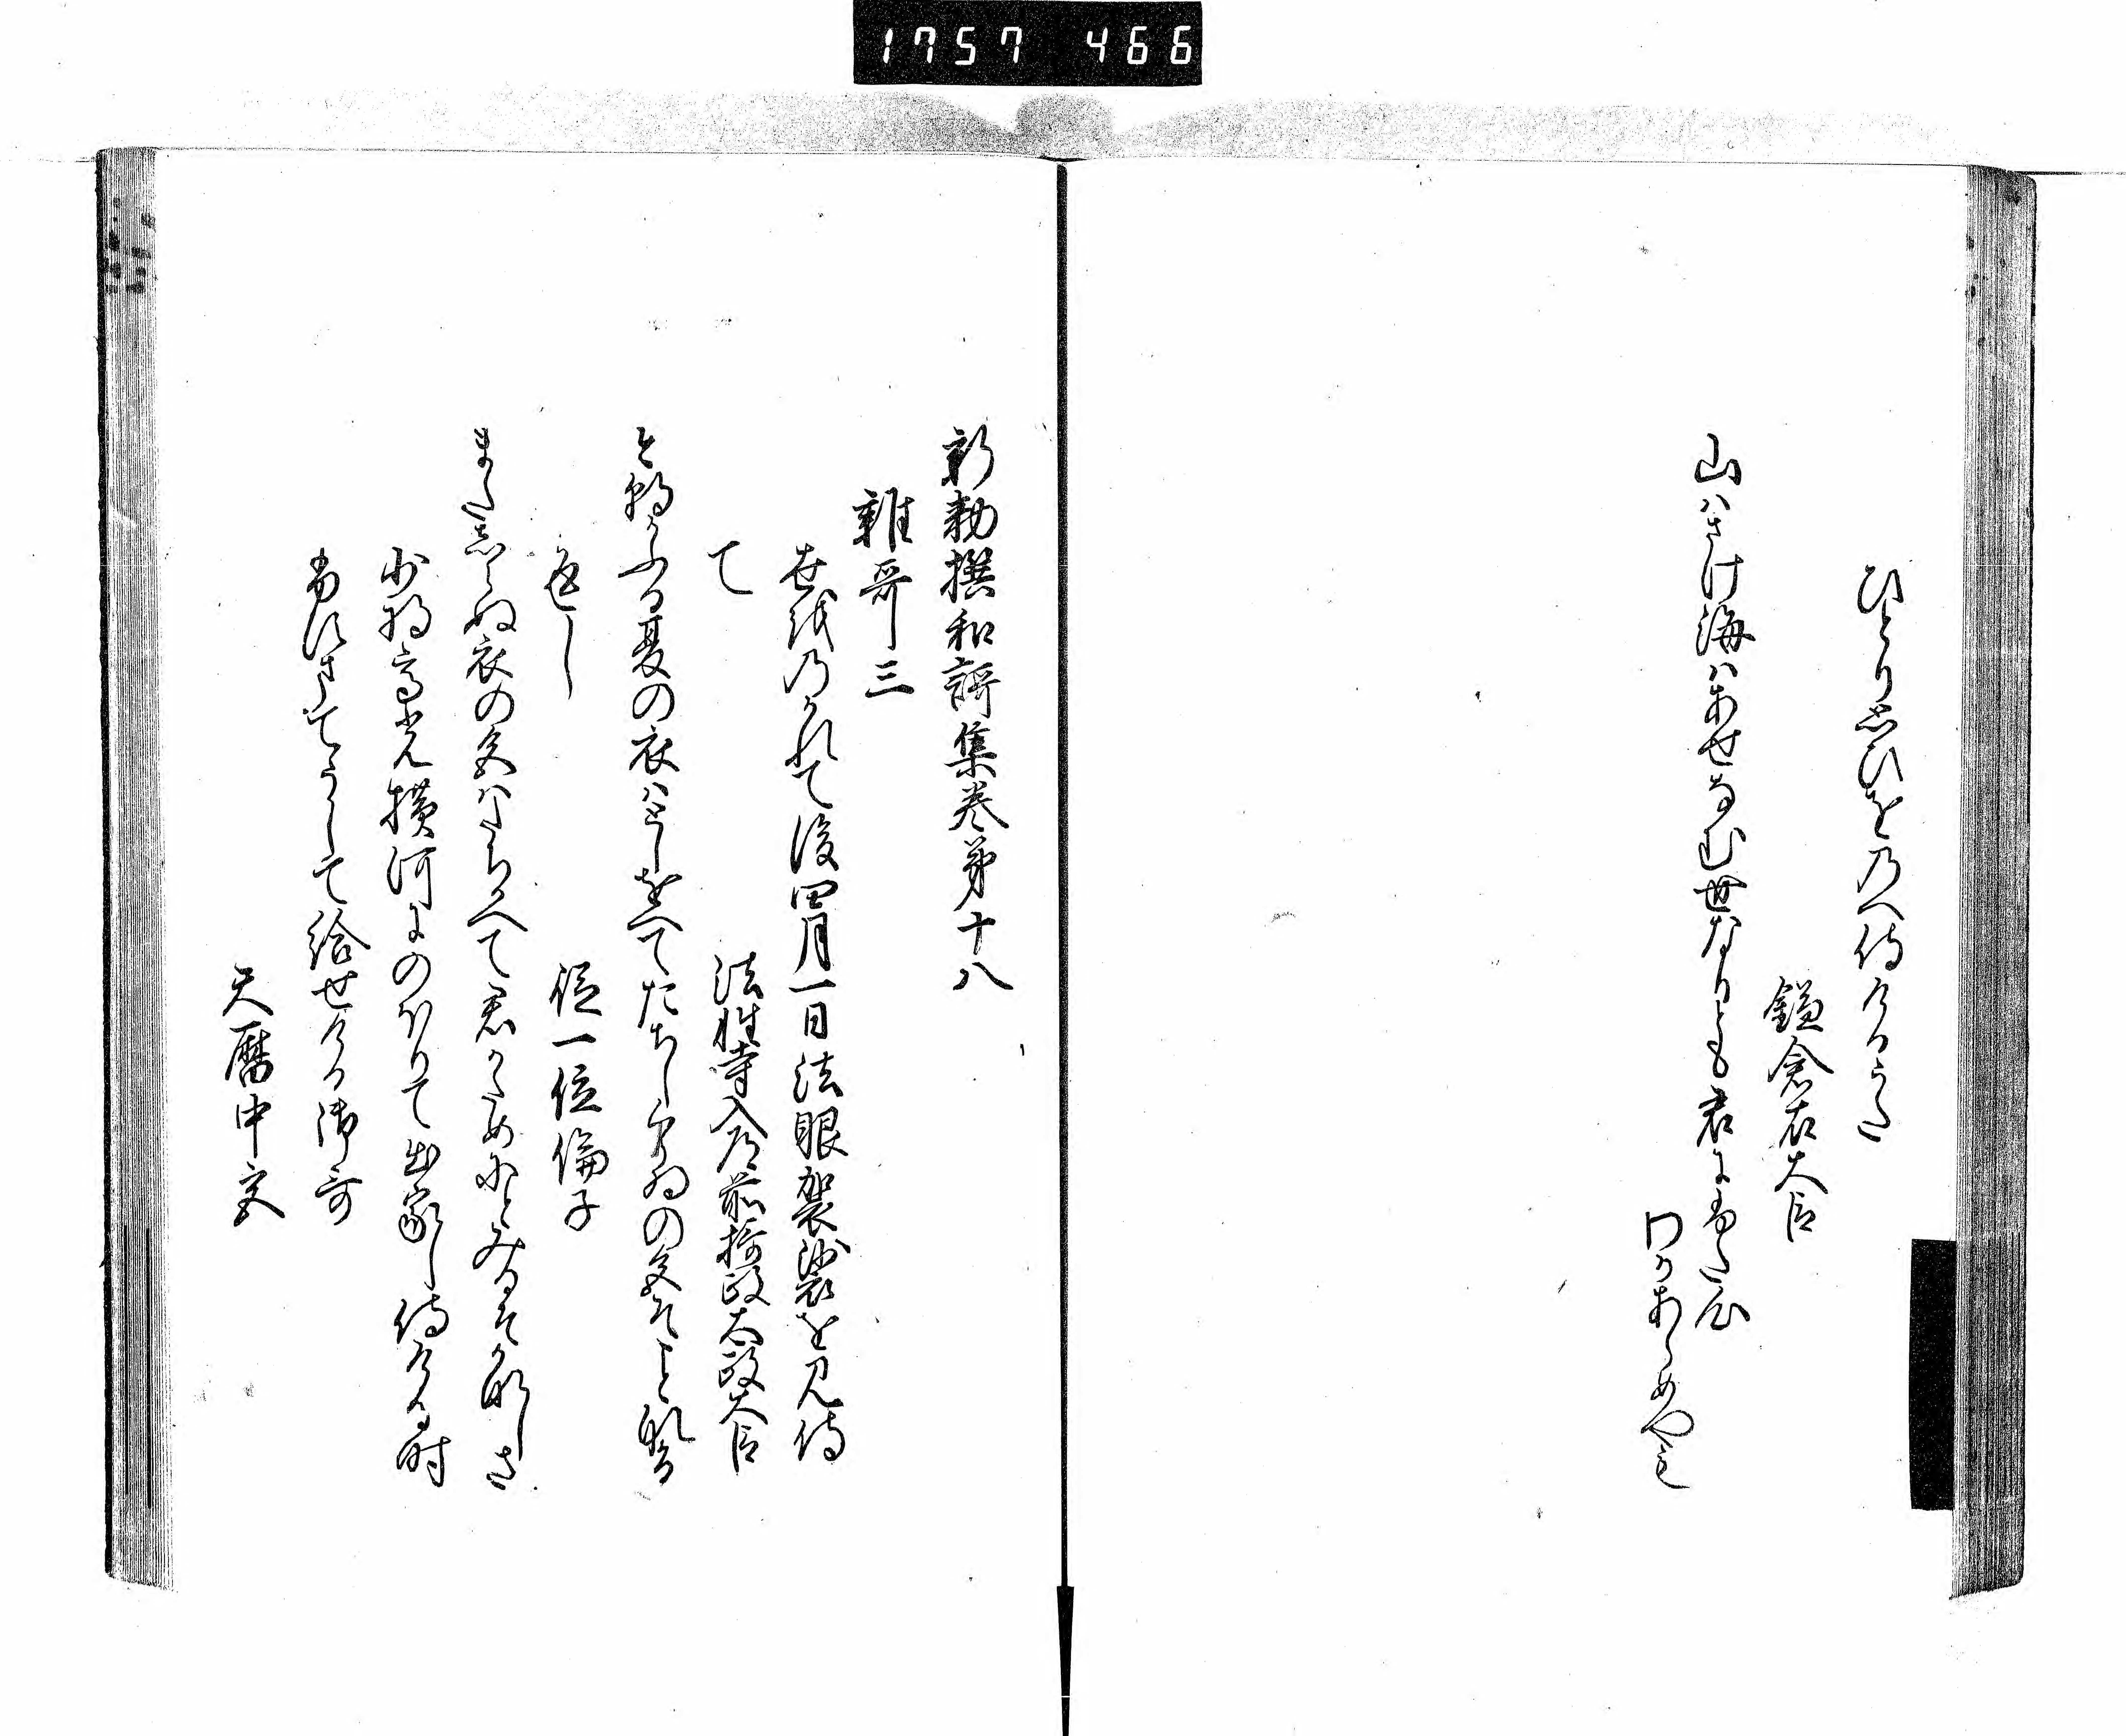 1757 466
ひとりおもひをのへ侍けるうた
鎌倉右大臣
山はさけ海はあせなむ世なりとも君にふた心
わかあらめやも
新勅撰和謌集巻第十八
雑哥三
世をのかれて後四月一日法眼袈裟を見侍
て
法性寺入道前摂政太政大臣
けふかふる夏の衣はとしをへてたちしくらゐの色そことなる
返し
従一位倫子
またしらぬ衣の色はたちかへて君かためにとみるそかなしさ
少将高光横河にのほりて出家し侍ける時
ふすまてうして給せける御哥
天暦中宮